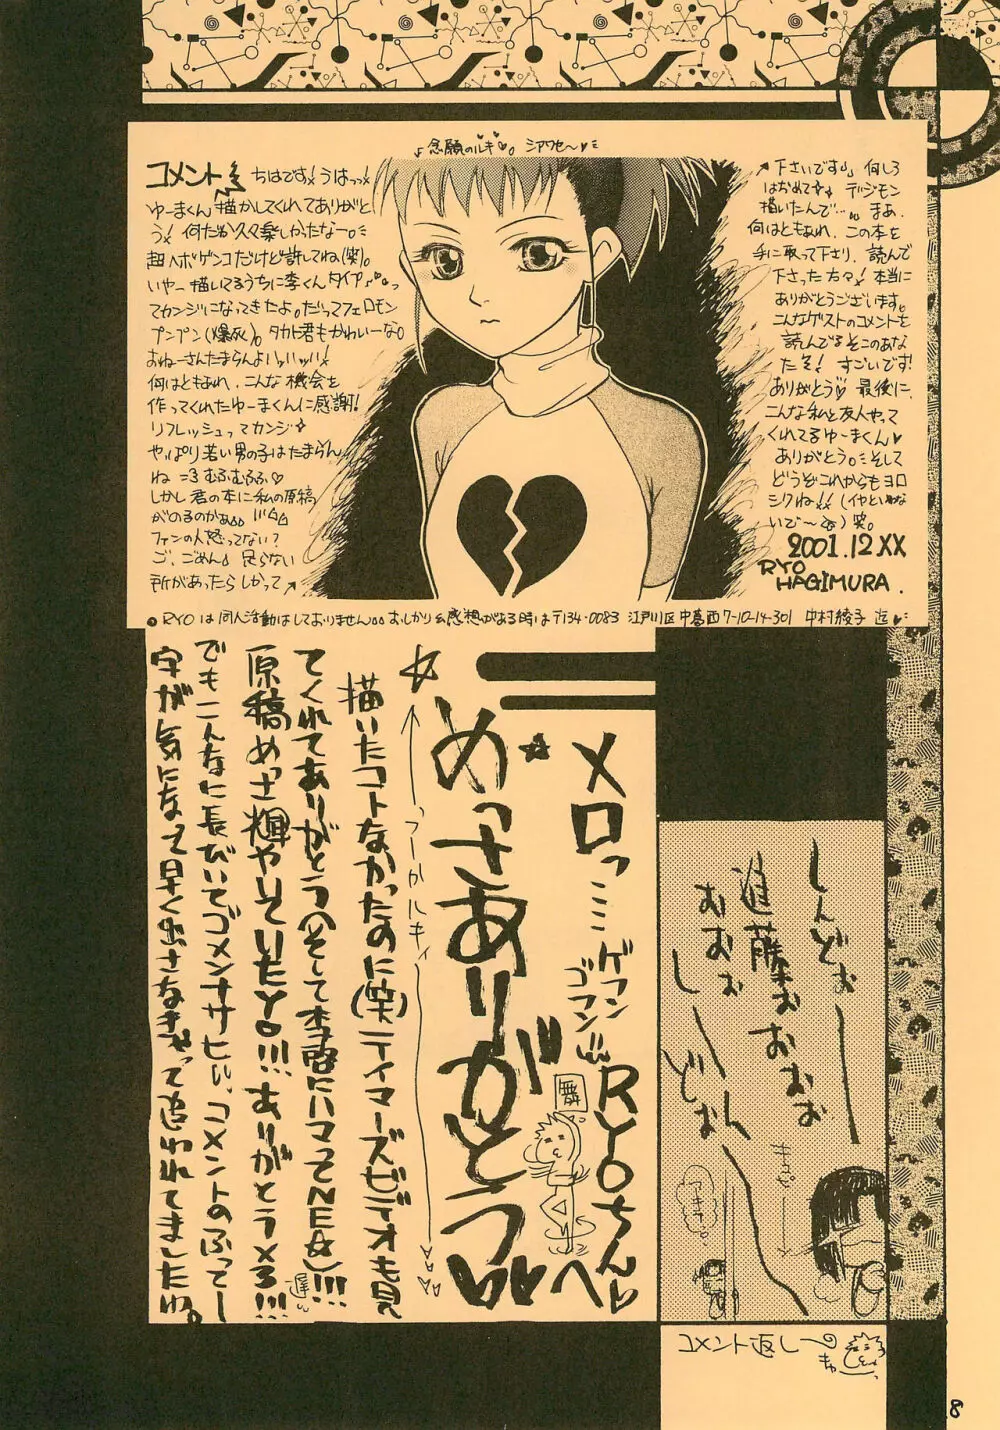 ♪念願のルキ♥。 シアワセ〜♥
コメント ちはです!うはっっ!
ゆーまくん描かしてくれてありがと
う! 何だか久々楽しかったなー。
超ヘボゲンコだけど許してね(笑)。
いやー描いてるうちに李くんタイプ♪
ってカンジになってきたよ。だってフェロモン
プンプン(爆死)。タカト君もかわいーな。
おねーさんたまらんよハァハァ!
何はともあれ、こんな機会を
作ってくれたゆーまくんに感謝!
リフレッシュってカンジ☆
やっぱり若い男の子はたまらん
ね =3 むふむふふ♡
しかし君の本に私の原稿
がのるのかぁ
ファンの人怒ってない?
ご、ごめん♪ 足らない
所があったらしかって↗
↗下さいです♪ 何しろ
はじめて デジモン
描いたんで…。まあ、
何はともあれ、この本を
手に取って下さり、読んで
下さった方々! 本当に
ありがとうございます。
こんなゲストのコメントを
読んでるそこのあな
たぞ! すごいです!
ありがとう♡ 最後に、
こんな私と友人やって
くれてるゆーまくん♥
ありがとう。そして
どうぞこれからもヨロ
シクね!! (イヤといわない
いで〜)笑。
2001.12XX
RYO
HAGIMURA.
RYOは同人活動はしておりません おしかり&感想がある時は〒134-0083 江戸川区中葛西7-10-14-301 中村綾子 迄♥
しんどぉー
進藤ぉおおおぉ
おおぉ
しーんどぉ
キュピ
メロっミミ ゲフンゴフン!!! RYOちん♥へ
舞
めっさありがとう♥♥
☆ ←つーかルキィ→
描いたコトなかったのに(笑)テイマーズビデオも見
てくれてありがとう(そして李君にハマってNE☆)!!!
原稿めっさ輝やいていたYO!!! ありがとうメ3!!!
遅い
でもこんなに長びいてゴメンナサヒぃ。コメントのふってー
字が気になって早く出さなきゃって追われてましたわ。
コメント返し〜
キャー
8